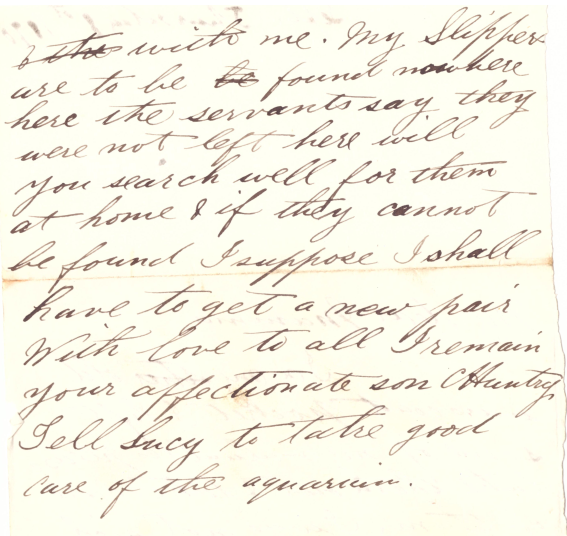 & the with me. My Slippers
are to be be found nowhere
here the servants say they
were not left here will
you search well for them
at home & if they cannot
be found I suppose I shall
have to get a new pair
With love to all I remain
your affectionate son
Tell Lucy to take good
care of the aquarium.